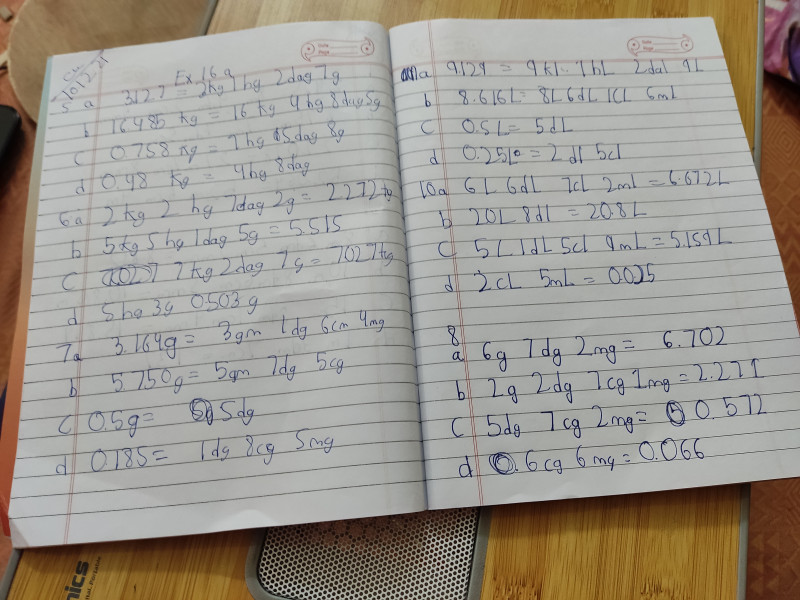 Ex. 16a
5 a 3.127 = 2kg 1hg 2dag 7g
b 16.485 kg = 16 kg 4 hg 8dag 5g
c 0.758 kg = 7hg 5dag 8g
d 0.48 kg = 4hg 8dag
6a 2kg 2 hg 7dag 2g = 2.272 kg
b 5kg 5hg 1dag 5g = 5.515
c 7kg 2dag 7g = 7.027kg
d 5hg 3g 0.503 g
7a 3.164g = 3gm 1dg 6cm 4mg
b 5.750g = 5gm 7dg 5cg
c 0.5g = 5dg
d 0.185 = 1dg 8cg 5mg
Date
Page
a 9129 = 9kl 1hL 2dal 9L
b 8.616L = 8L 6dL 1cL 6mL
c 0.5L = 5dL
d 0.25L = 2dl 5cl
10a 6L 6dL 7cl 2mL = 6.672L
b 20L 8dl = 20.8L
c 5L 1dL 5cl 9mL = 5.159L
d 2cL 5mL = 0.025
8
a 6g 7dg 2mg = 6.702
b 2g 2dg 7cg 1mg = 2.271
c 5dg 7cg 2mg = 0.572
d 6cg 6mg = 0.066
nics